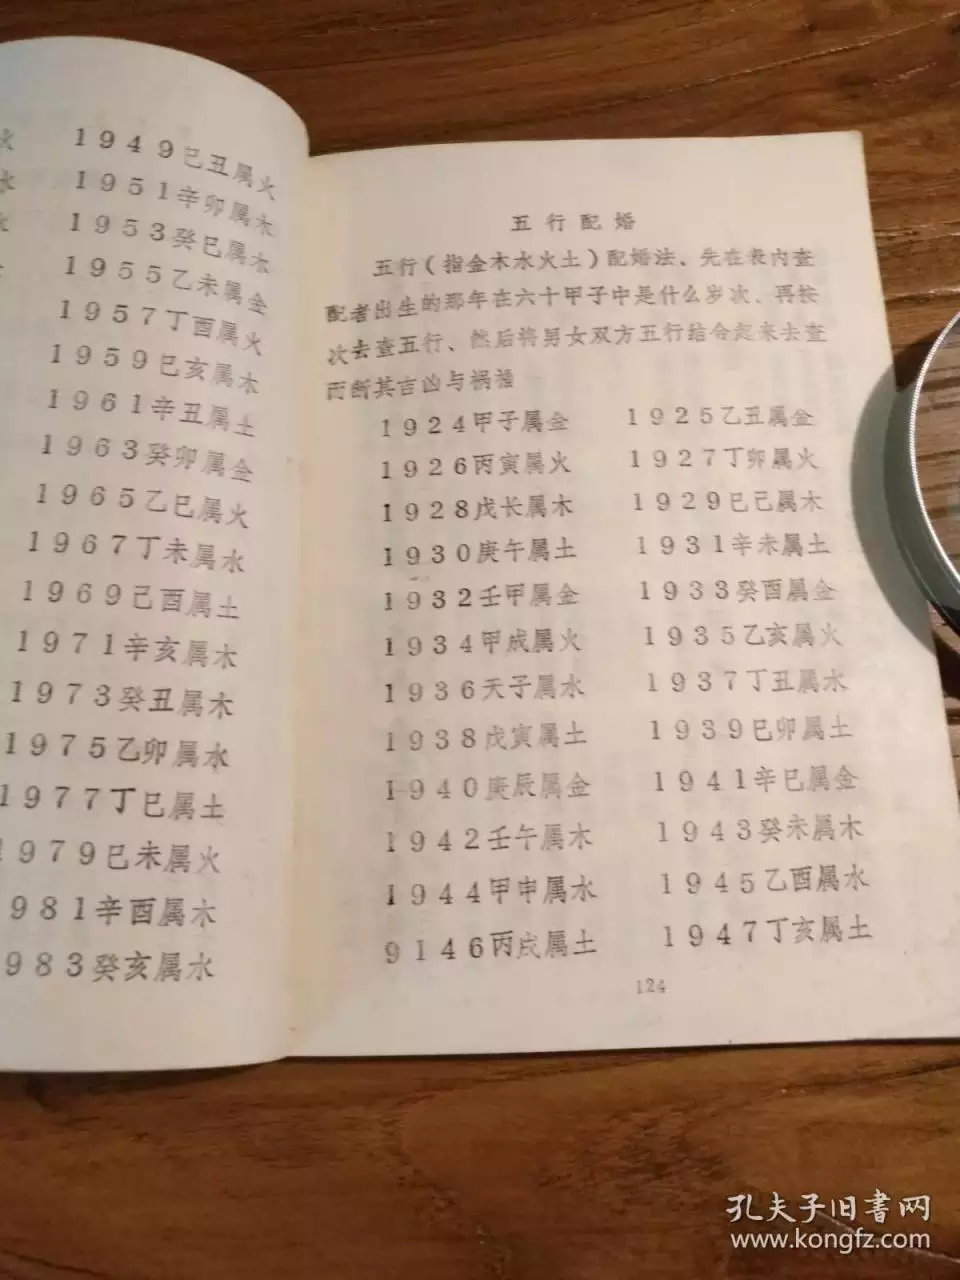 火
1949己丑属火
水
1951辛卯属木
1953癸巳属木
1955乙未属金
1957丁酉属火
1959己亥属木
1961辛丑属土
1963癸卯属金
1965乙巳属火
1967丁未属水
1969己酉属土
1971辛亥属木
1973癸丑属木
1975乙卯属水
1977丁巳属土
1979巳未属火
981辛酉属木
983癸亥属水
五行配婚
五行(指金木水火土)配婚法、先在表内查
配者出生的那年在六十甲子中是什么岁次、再按
次去查五行、然后将男女双方五行结合起来去查
而断其吉凶与祸福
1924甲子属金 1925乙丑属金
1926丙寅属火 1927丁卯属火
1928戊长属木 1929巳己属木
1930庚午属土 1931辛未属土
1932壬甲属金 1933癸酉属金
1934甲成属火 1935乙亥属火
1936天子属水 1937丁丑属水
1938戊寅属土 1939巳卯属土
1940庚辰属金 1941辛巳属金
1942壬午属木 1943癸未属木
1944甲申属水 1945乙酉属水
9146丙戌属土 1947丁亥属土
124
孔夫子旧书网
www.kongfz.com